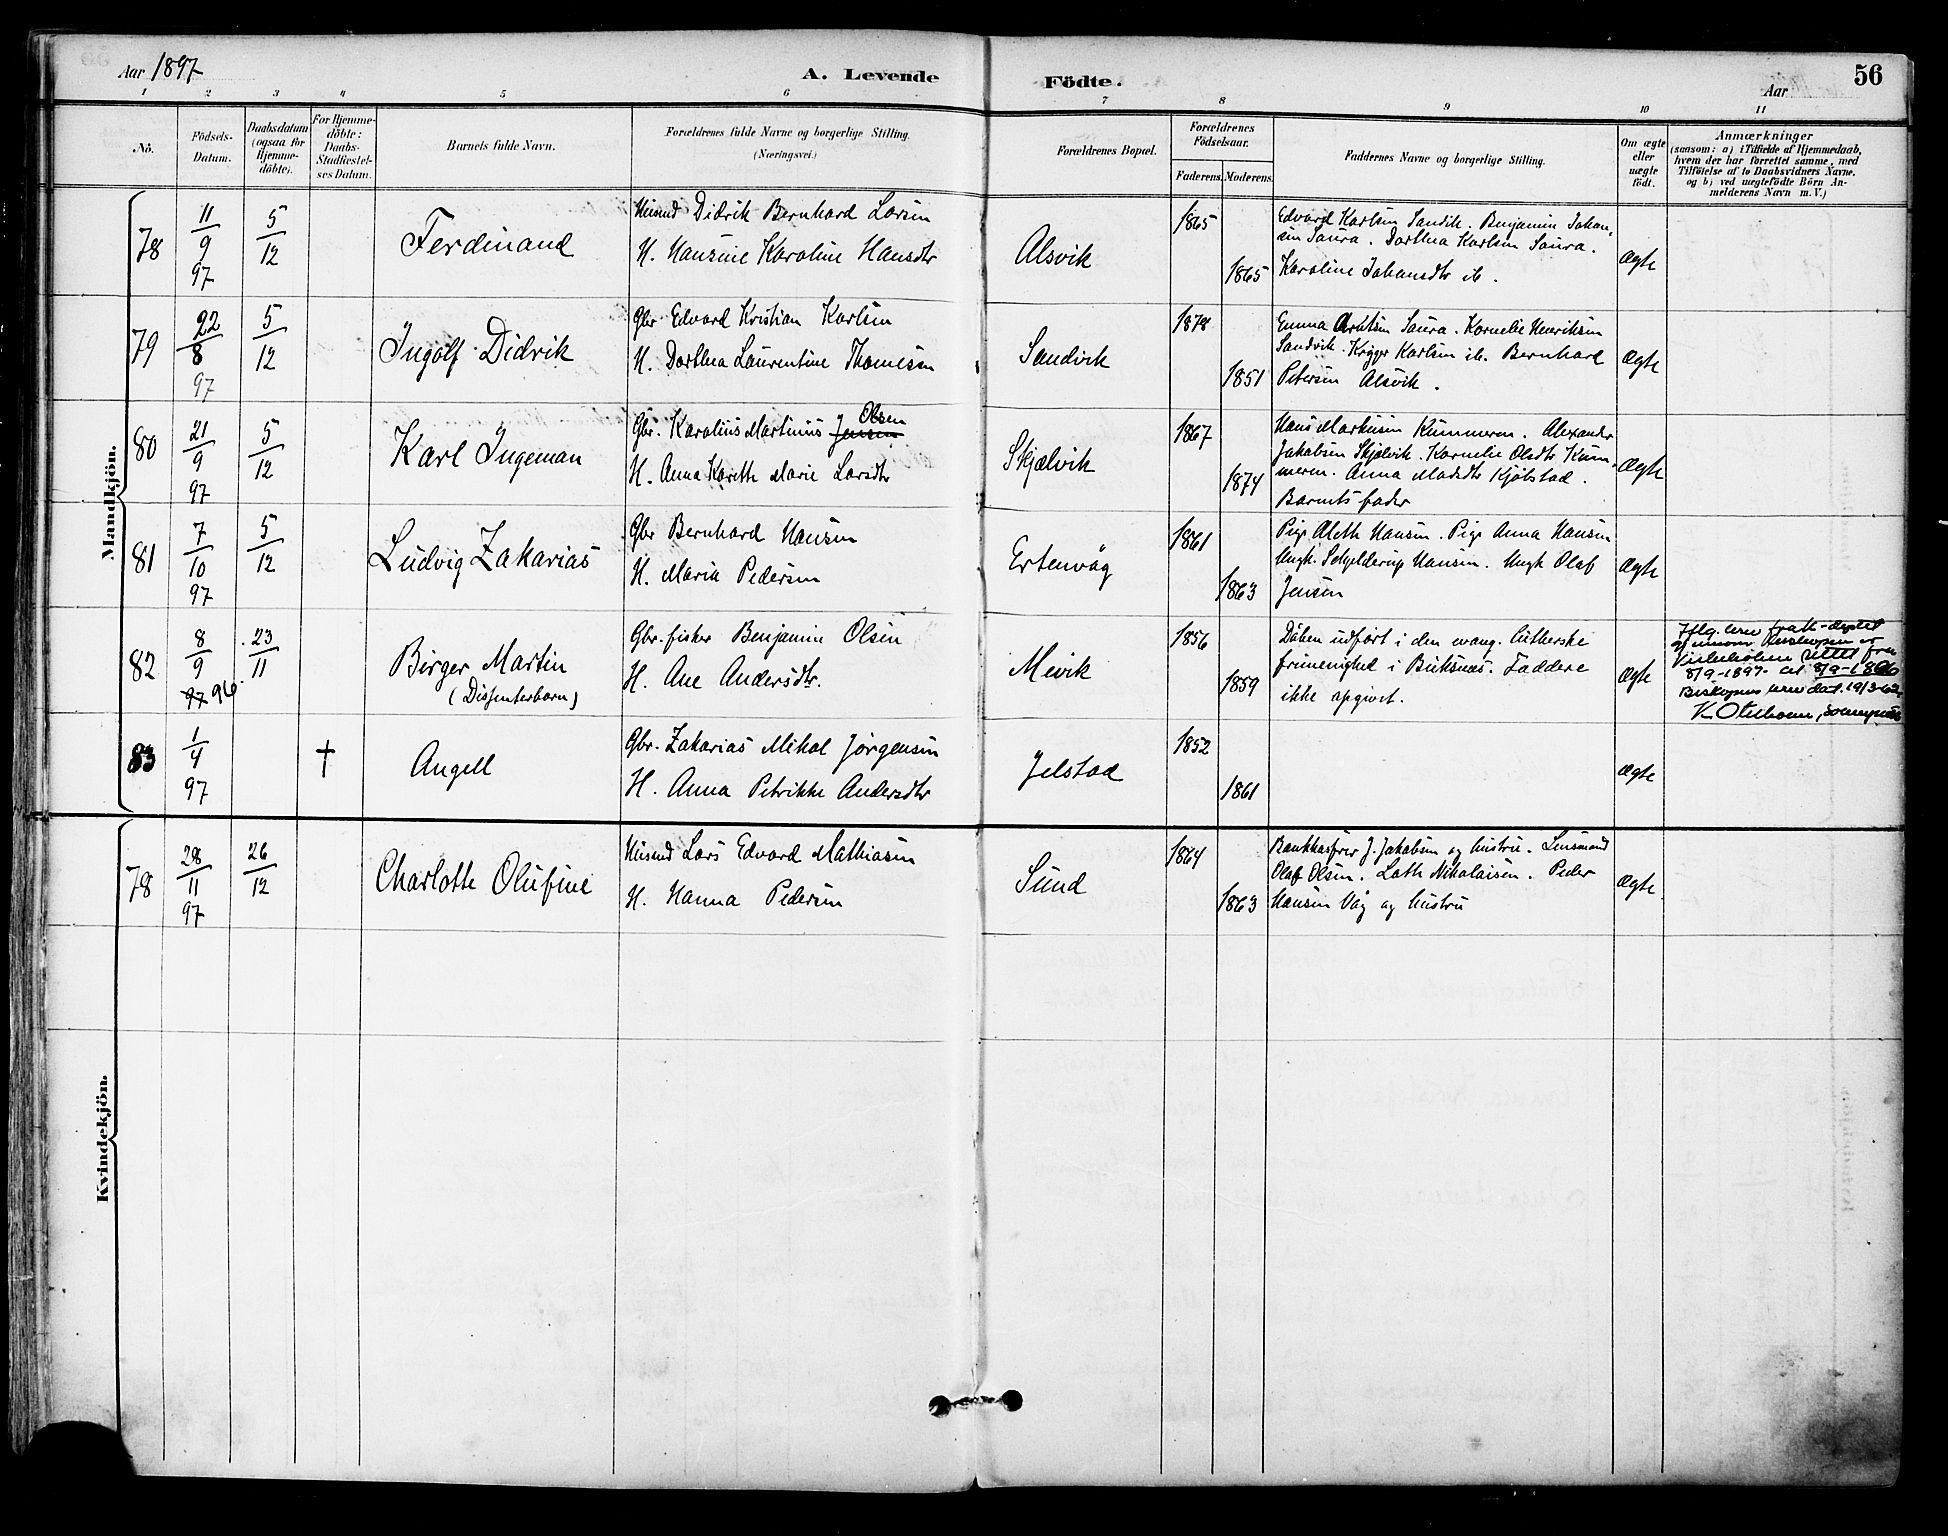 Aar 1897
A. Levende Födte.
Aar
56
1 2 3 4 5 6 7 8 9 10 11
Nô.
Födsels-
Datum.
Daabsdatum
(ogsaa for
Hjemme-
döbte).
For Hjemme-
döbte:
Daabs-
Stadfæstel-
ses Datum.
Barnets fulde Navn.
Forældrenes fulde Navne og borgerlige Stilling.
(Næringsvei.)
Forældrenes Bopæl.
Forældrenes
Födselsaar.
Faderens.
Moderens.
Faddernes Navne og borgerlige Stilling.
Om ægte
eller
uægte
födt.
Anmærkninger
(saasom: a) i Tilfælde af Hjemmedaab,
hvem der har forrettet samme, med
Tilföielse af to Daabsvidners Navne.
og b) ved uægtefödte Börn An-
melderens Navn m. V.)
Mandkjön.
78
11/9 97
5/12
Ferdinand
Husmd Didrik Bernhard Larsen
H. Hansine Karoline Hansdtr
Alsvik
1865
1865
Edvard Karlsen Sandvik. Benjamin Johan-
sen Saura. Dorthea Karlsen Saura.
Karoline Johansdtr ib.
Ægte
79
22/8 97
5/12
Ingolf Didrik
Gbr Edvard Kristian Karlsen
H. Dorthea Laurentine Thomesen
Sandvik
1878
1851
Emma Arntsen Saura. Kornelie Henriksen
Sandvik. Krøger Karlsen ib. Bernhard
Petersen Alsvik.
Ægte
80
21/9 97
5/12
Karl Ingeman
Olsen
Gbr. Karolius Martinius Jensen
H. Anna Karette Marie Larsdtr
Skjælvik
1867
1874
Hans Markusen Kummeren. Alexander
Jakobsen Skjelvik. Kornelie Olsdtr Kum-
meren. Anna Madsdtr Kjøbstad.
Barnets fader
Ægte
81
7/10 97
5/12
Ludvig Zakarias
Gbr Bernhard Hansen
H. Maria Pedersen
Ertenvåg
1861
1863
Pige Aleth Hansen. Pige Anna Hansen
Ungk. Schjelderup Hansen. Ungk Olaf
Jensen
Ægte
82
8/9 97 96
23/11
Birger Martin
(Dissenterbarn)
Gbr. fisker Benjamin Olsen
H. Ane Andersdtr.
Mevik
1856
1859
Dåben udført i den evang. lutherske
frimenighed i Buksnæs. Faddere
ikke opgivet.
Ægte
8/9-1897 til 8/9-1896
Biskopens brev dat. 19/3-62
83
1/4 97
†
Angell
Gbr. Zakarias Mikal Jørgensen
H. Anna Petrikke Andersdtr
Jelstad
1852
1861
Ægte
Kvindekjön.
78
28/11 97
26/12
Charlotte Olufine
Husmd Lars Edvard Mathiasen
H. Hanna Pedersen
Sund
1864
1863
Bankkasfrer J. Jakobsen og hustru. Lensmand
Olaf Olsen. Lath Nikolaisen. Peder
Hansen Våg og hustru
Ægte